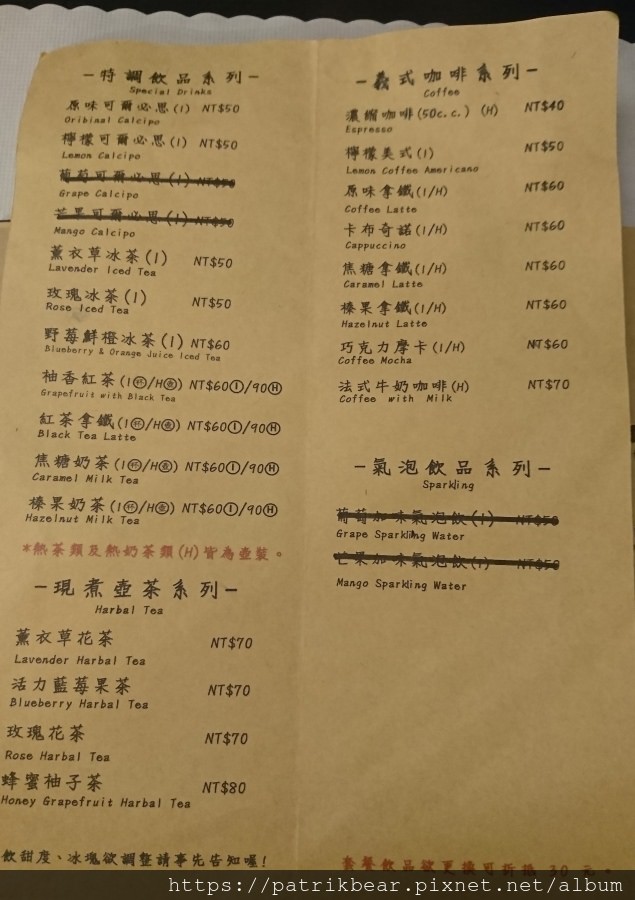 －特調飲品系列－
Special Drinks
原味可爾必思(I) NT$50
Oribinal Calcipo
檸檬可爾必思(I) NT$50
Lemon Calcipo
葡萄可爾必思(I) NT$50
Grape Calcipo
芒果可爾必思(I) NT$50
Mango Calcipo
薰衣草冰茶(I) NT$50
Lavender Iced Tea
玫瑰冰茶(I) NT$50
Rose Iced Tea
野莓鮮橙冰茶(I) NT$60
Blueberry & Orange Juice Iced Tea
柚香紅茶(I㊉/H㊉) NT$60Ⓘ/90Ⓗ
Grapefruit with Black Tea
紅茶拿鐵(I/H) NT$60Ⓘ/90Ⓗ
Black Tea Latte
焦糖奶茶(I/H) NT$60Ⓘ/90Ⓗ
Caramel Milk Tea
榛果奶茶(I/H) NT$60Ⓘ/90Ⓗ
Hazelnut Milk Tea
*熱茶類及熱奶茶類(H)皆為壺裝。
－現煮壺茶系列－
Harbal Tea
薰衣草花茶 NT$70
Lavender Harbal Tea
活力藍莓果茶 NT$70
Blueberry Harbal Tea
玫瑰花茶 NT$70
Rose Harbal Tea
蜂蜜柚子茶 NT$80
Honey Grapefruit Harbal Tea
飲甜度、冰塊欲調整請事先告知喔!
－義式咖啡系列－
Coffee
濃縮咖啡(50c.c.) (H) NT$40
Espresso
檸檬美式(I) NT$50
Lemon Coffee Americano
原味拿鐵(I/H) NT$60
Coffee Latte
卡布奇諾(I/H) NT$60
Cappuccino
焦糖拿鐵(I/H) NT$60
Caramel Latte
榛果拿鐵(I/H) NT$60
Hazelnut Latte
巧克力摩卡(I/H) NT$60
Coffee Mocha
法式牛奶咖啡(H) NT$70
Coffee with Milk
－氣泡飲品系列－
Sparkling
葡萄加味氣泡飲(I) NT$50
Grape Sparkling Water
芒果加味氣泡飲(I) NT$50
Mango Sparkling Water
套餐飲品欲更換可折抵 30 元。
https://patrikbear.pixnet.net/album